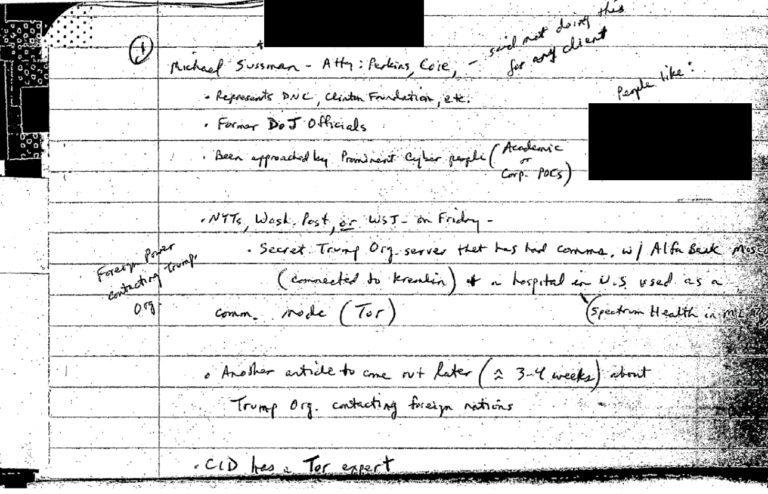 ①
Michael Sussman - Atty: Perkins, Coie, - said not doing this for any client
• Represents DNC, Clinton Foundation, etc.
• Former DoJ Officials
• Been approached by Prominent Cyber people (Academic or Corp. POCs)
People like:
• NYTs, Wash. Post, or WSJ - on Friday -
• Secret Trump Org. server that has had comms. w/ Alfa Bank Mosc
Foreign Power
contacting Trump
Org.
(connected to Kremlin) & a hospital in U.S. used as a
comm. node (Tor) (Spectrum Health in
• Another article to come out later (≈ 3-4 weeks) about
Trump Org. contacting foreign nations
• CID has a Tor expert